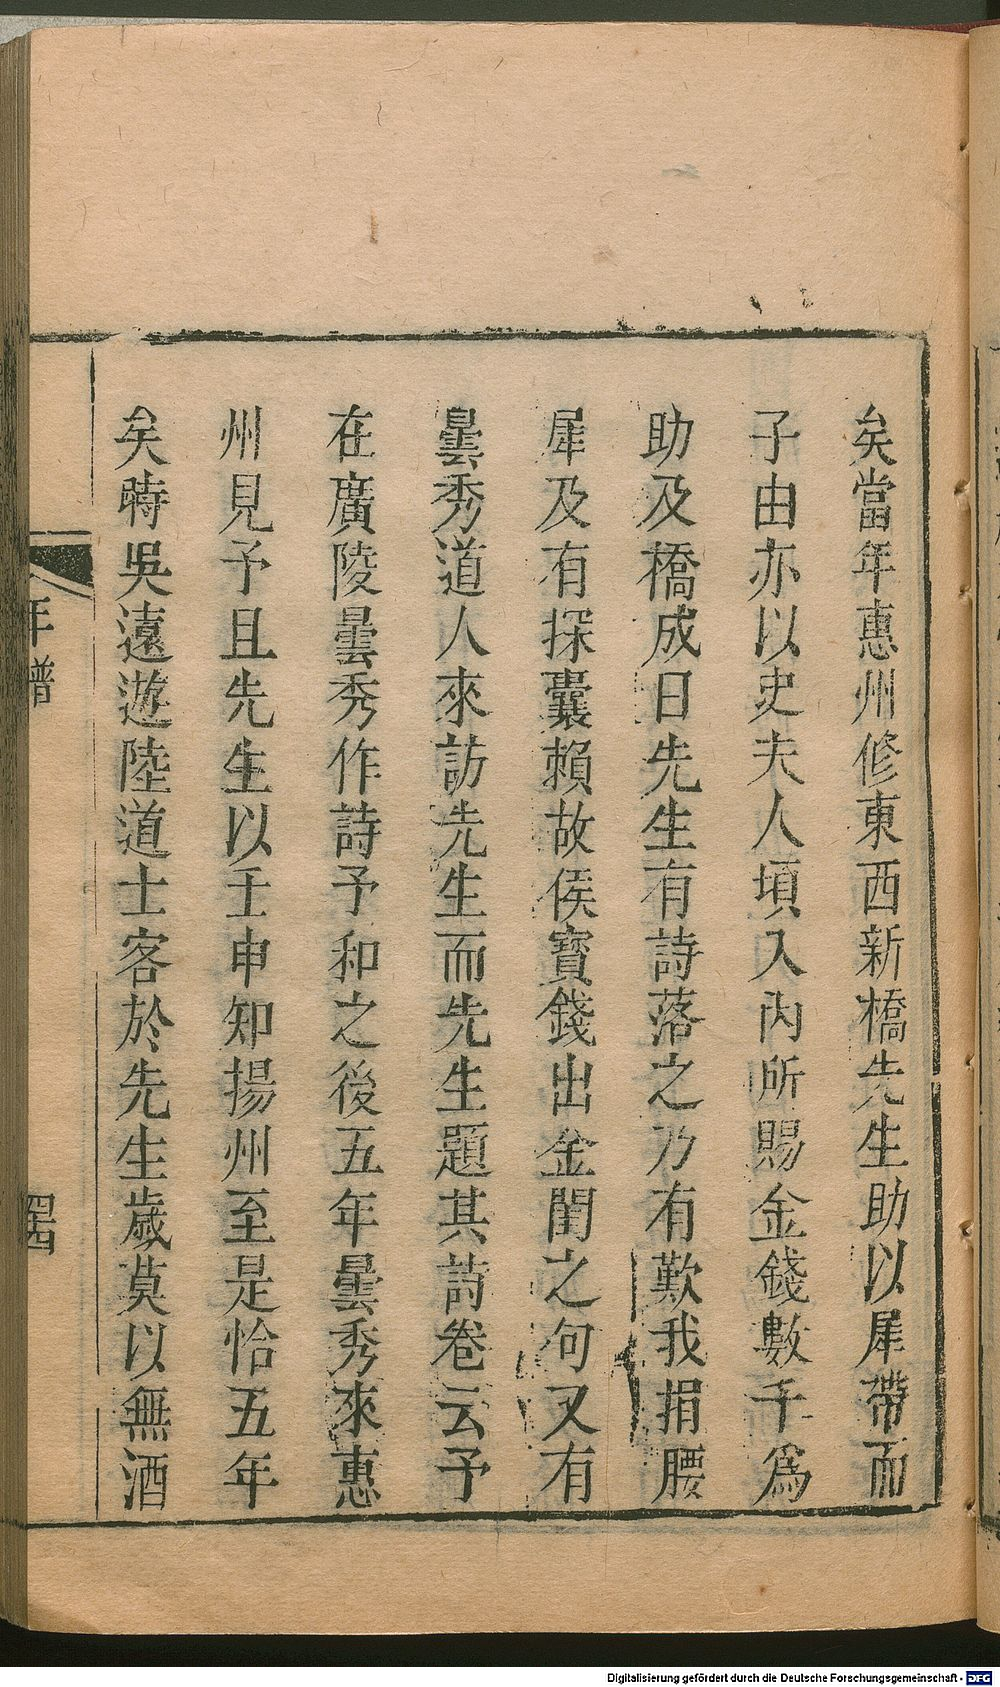 矣當年惠州修東西新橋先生助以犀帶而
子由亦以史夫人頃入內所賜金錢數千爲
助及橋成日先生有詩落之乃有歎我捐腰
犀及有探囊賴故侯寳錢出金閨之句又有
曇秀道人來訪先生而先生題其詩卷云予
在廣陵曇秀作詩予和之後五年曇秀來惠
州見予且先生以壬申知揚州至是恰五年
矣時吳遠遊陸道士客於先生歲莫以無酒
年譜
Digitalisierung gefördert durch die Deutsche Forschungsgemeinschaft - DFG